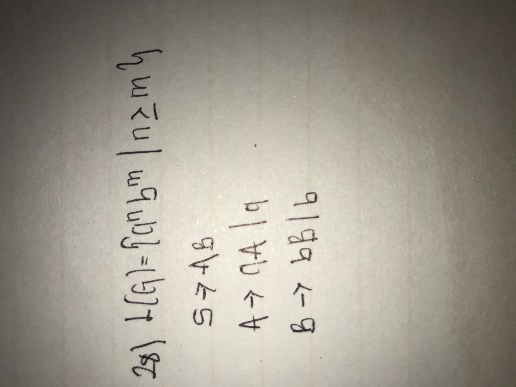 28) L(G)={aⁿbᵐ | n≥m}
S→AB
A→aA|a
B→bB|b